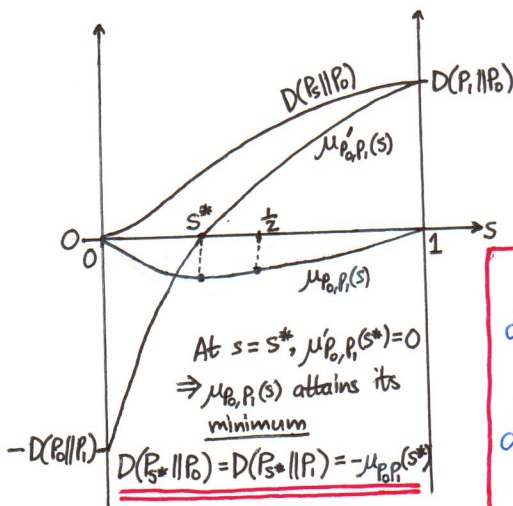 D(Pₛ||P₀)
D(P₁||P₀)
μ'P₀,P₁(s)
S* ½
0 S
0 1
μP₀,P₁(s)
At s = s*, μ'P₀,P₁(s*)=0
⇒ μP₀,P₁(s) attains its
minimum
-D(P₀||P₁)
D(Pₛ*||P₀) = D(Pₛ*||P₁) = -μP₀P₁(s*)